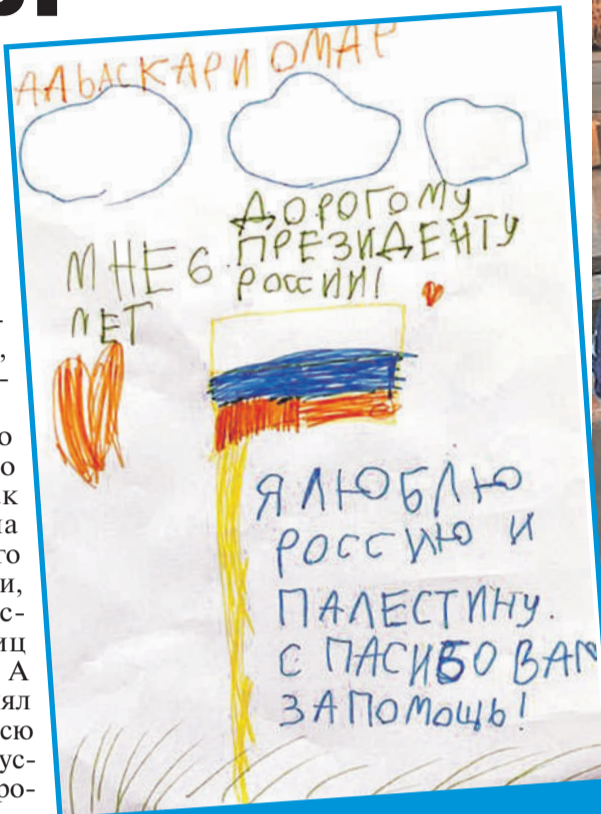 АЛЬАСКАРИ ОМАР
МНЕ 6
ЛЕТ
ДОРОГОМУ
ПРЕЗИДЕНТУ
РОССИИ!
Я ЛЮБЛЮ
РОССИЮ И
ПАЛЕСТИНУ.
С ПАСИБО ВАМ
ЗА ПОМОЩЬ!